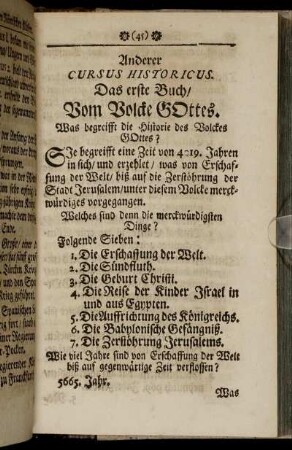 (45)
Anderer
CURSUS HISTORICUS.
Das erste Buch/
Vom Volcke GOttes.
Was begreifft die Historie des Volckes
GOttes?
SJe begreifft eine Zeit von 4219. Jahren
in sich/ und erzehlet / was von Erschaf-
fung der Welt/ biß auf die Zerstöhrung der
Stadt Jerusalem/unter diesem Volcke merck-
würdiges vorgegangen.
Welches sind denn die merckwürdigsten
Dinge?
Folgende Sieben:
1. Die Erschaffung der Welt.
2. Die Sündfluth.
3. Die Geburt Christi.
4. Die Reise der Kinder Israel in
und aus Egypten.
5. Die Auffrichtung des Königreichs.
6. Die Babylonische Gefängniß.
7. Die Zerstöhrung Jerusalems.
Wie viel Jahre sind von Erschaffung der Welt
biß auf gegenwärtige Zeit verflossen?
5665. Jahr.
Was